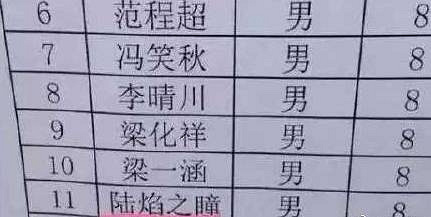 6 范程超 男 8
7 冯笑秋 男 8
8 李晴川 男 8
9 梁化祥 男 8
10 梁一涵 男 8
11 陆焰之瞳 男 8